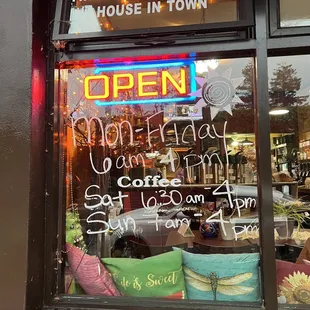 HOUSE IN TOWN
OPEN
Mon-Friday
6am-4pm!
Coffee
Sat 6:30am-4pm
Sun 7am-4pm
& Sweet